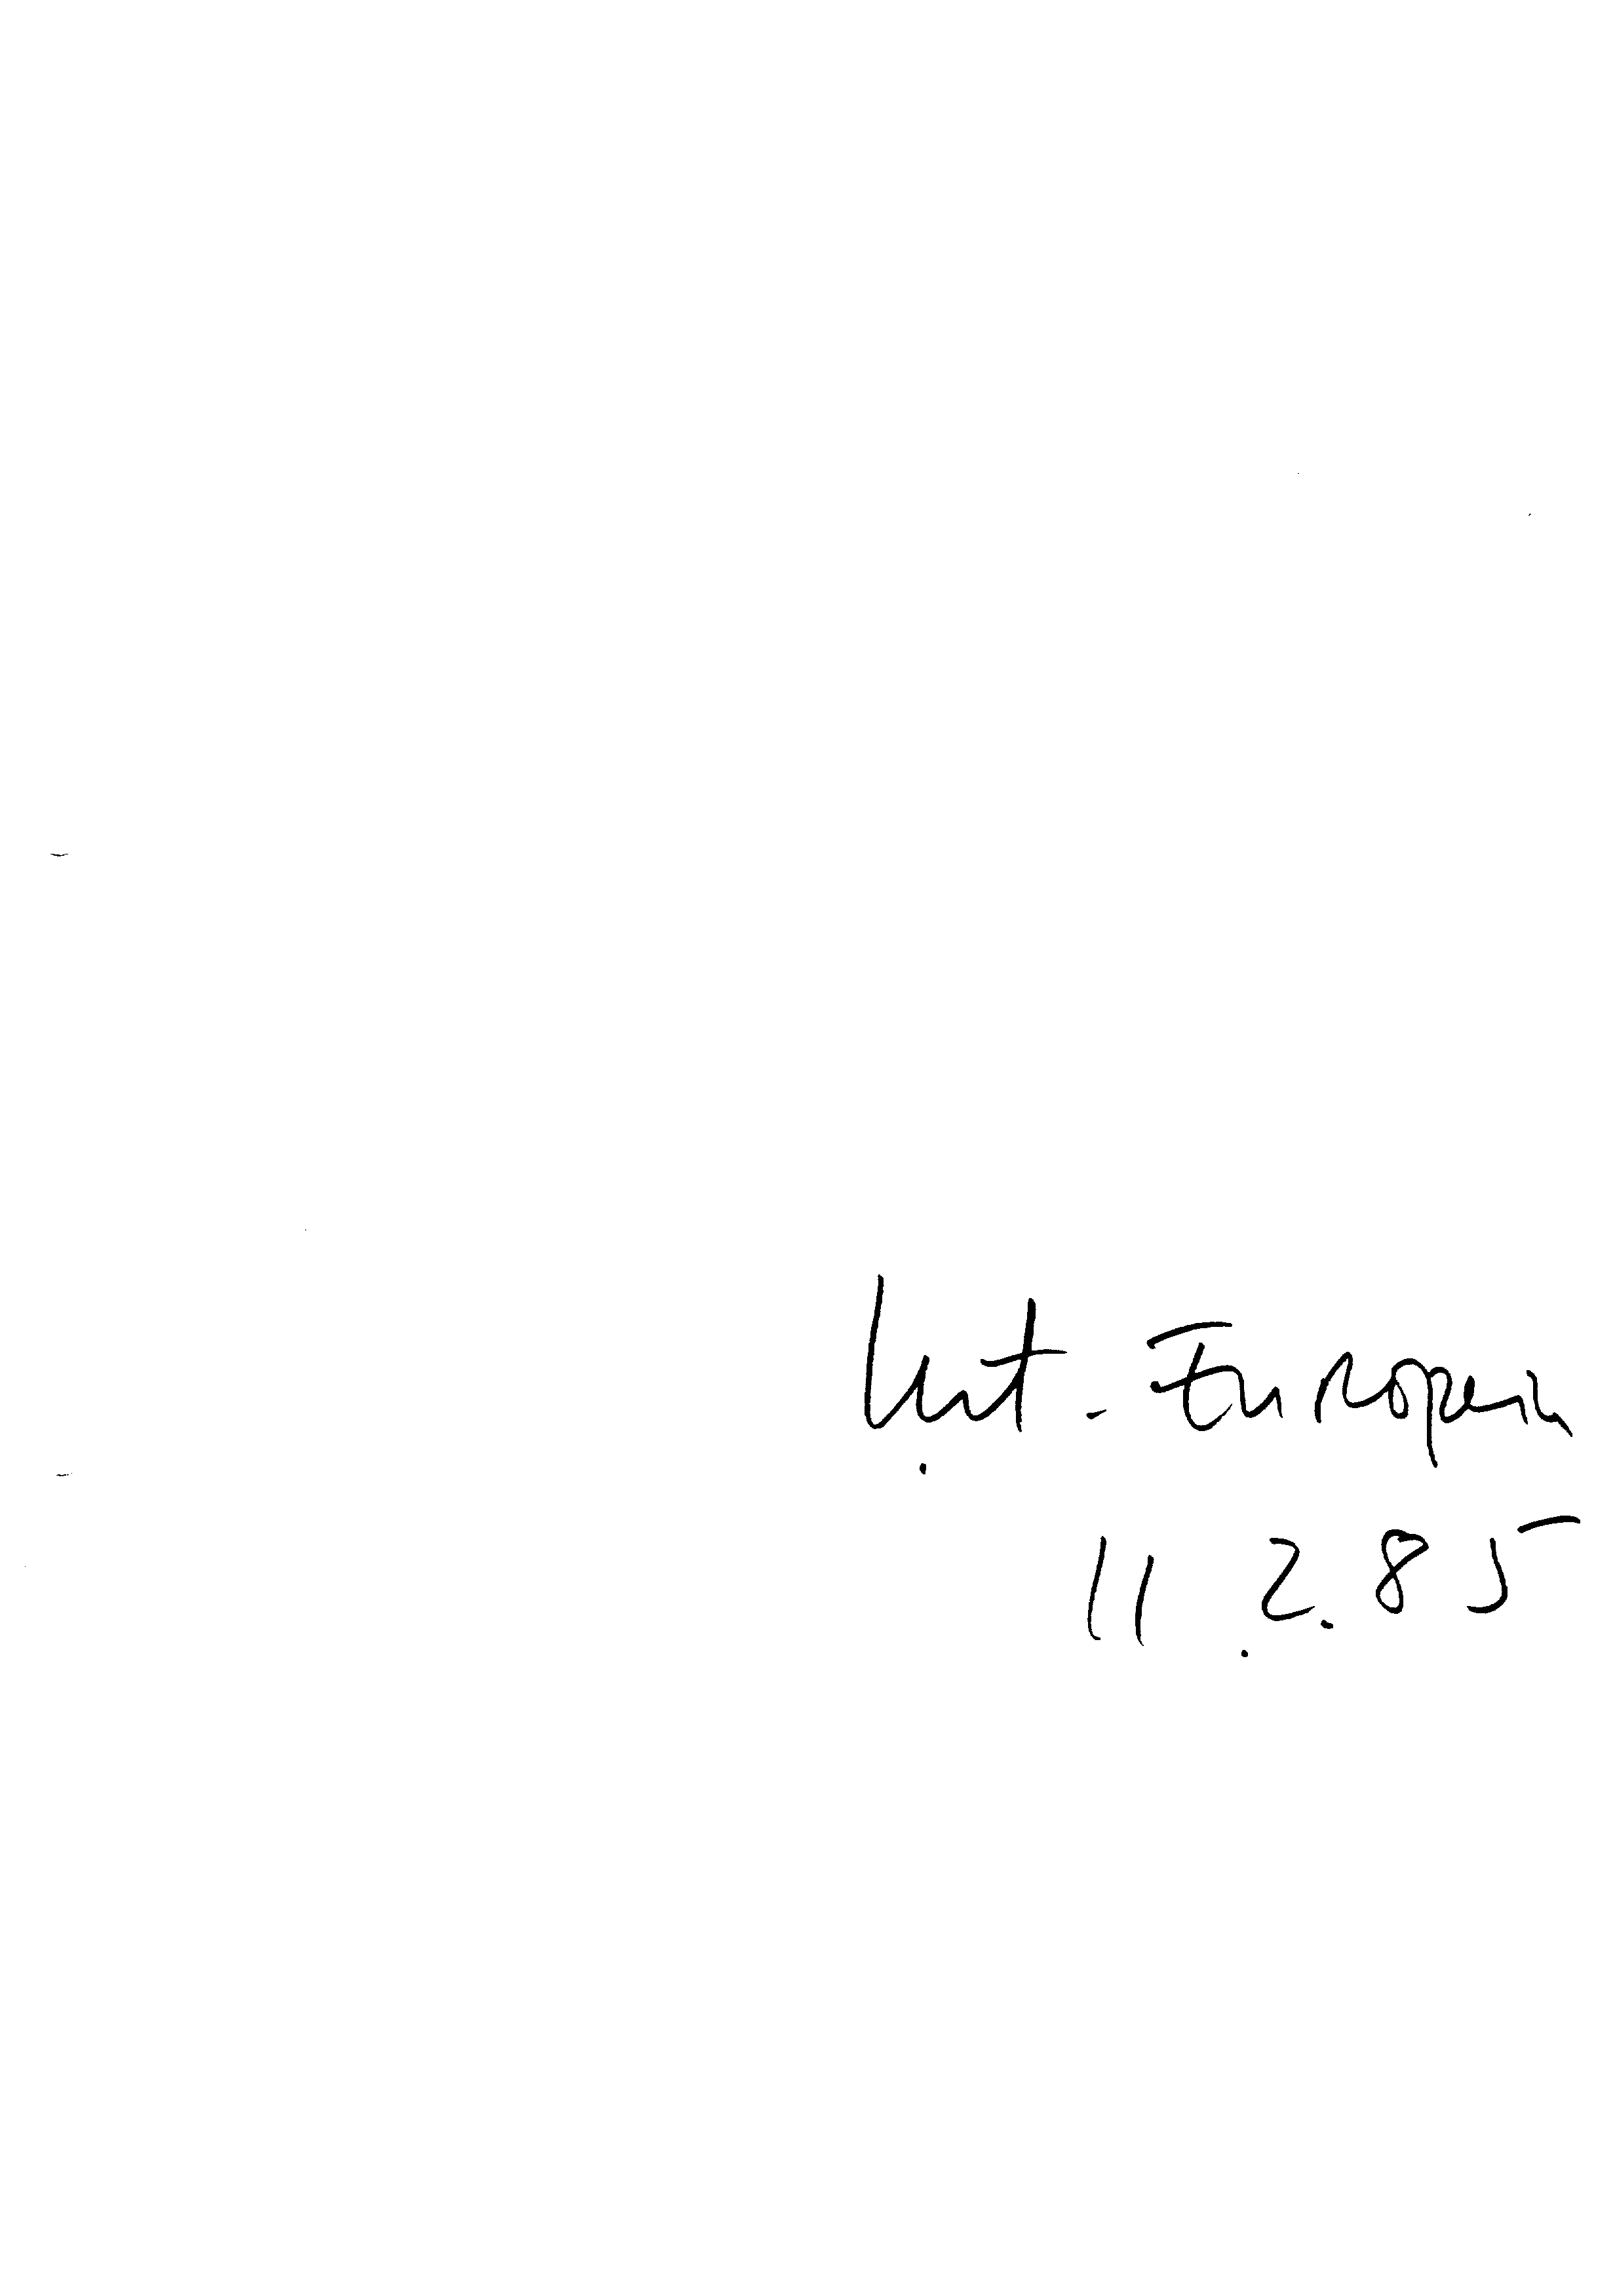 Int - European
11.2.85